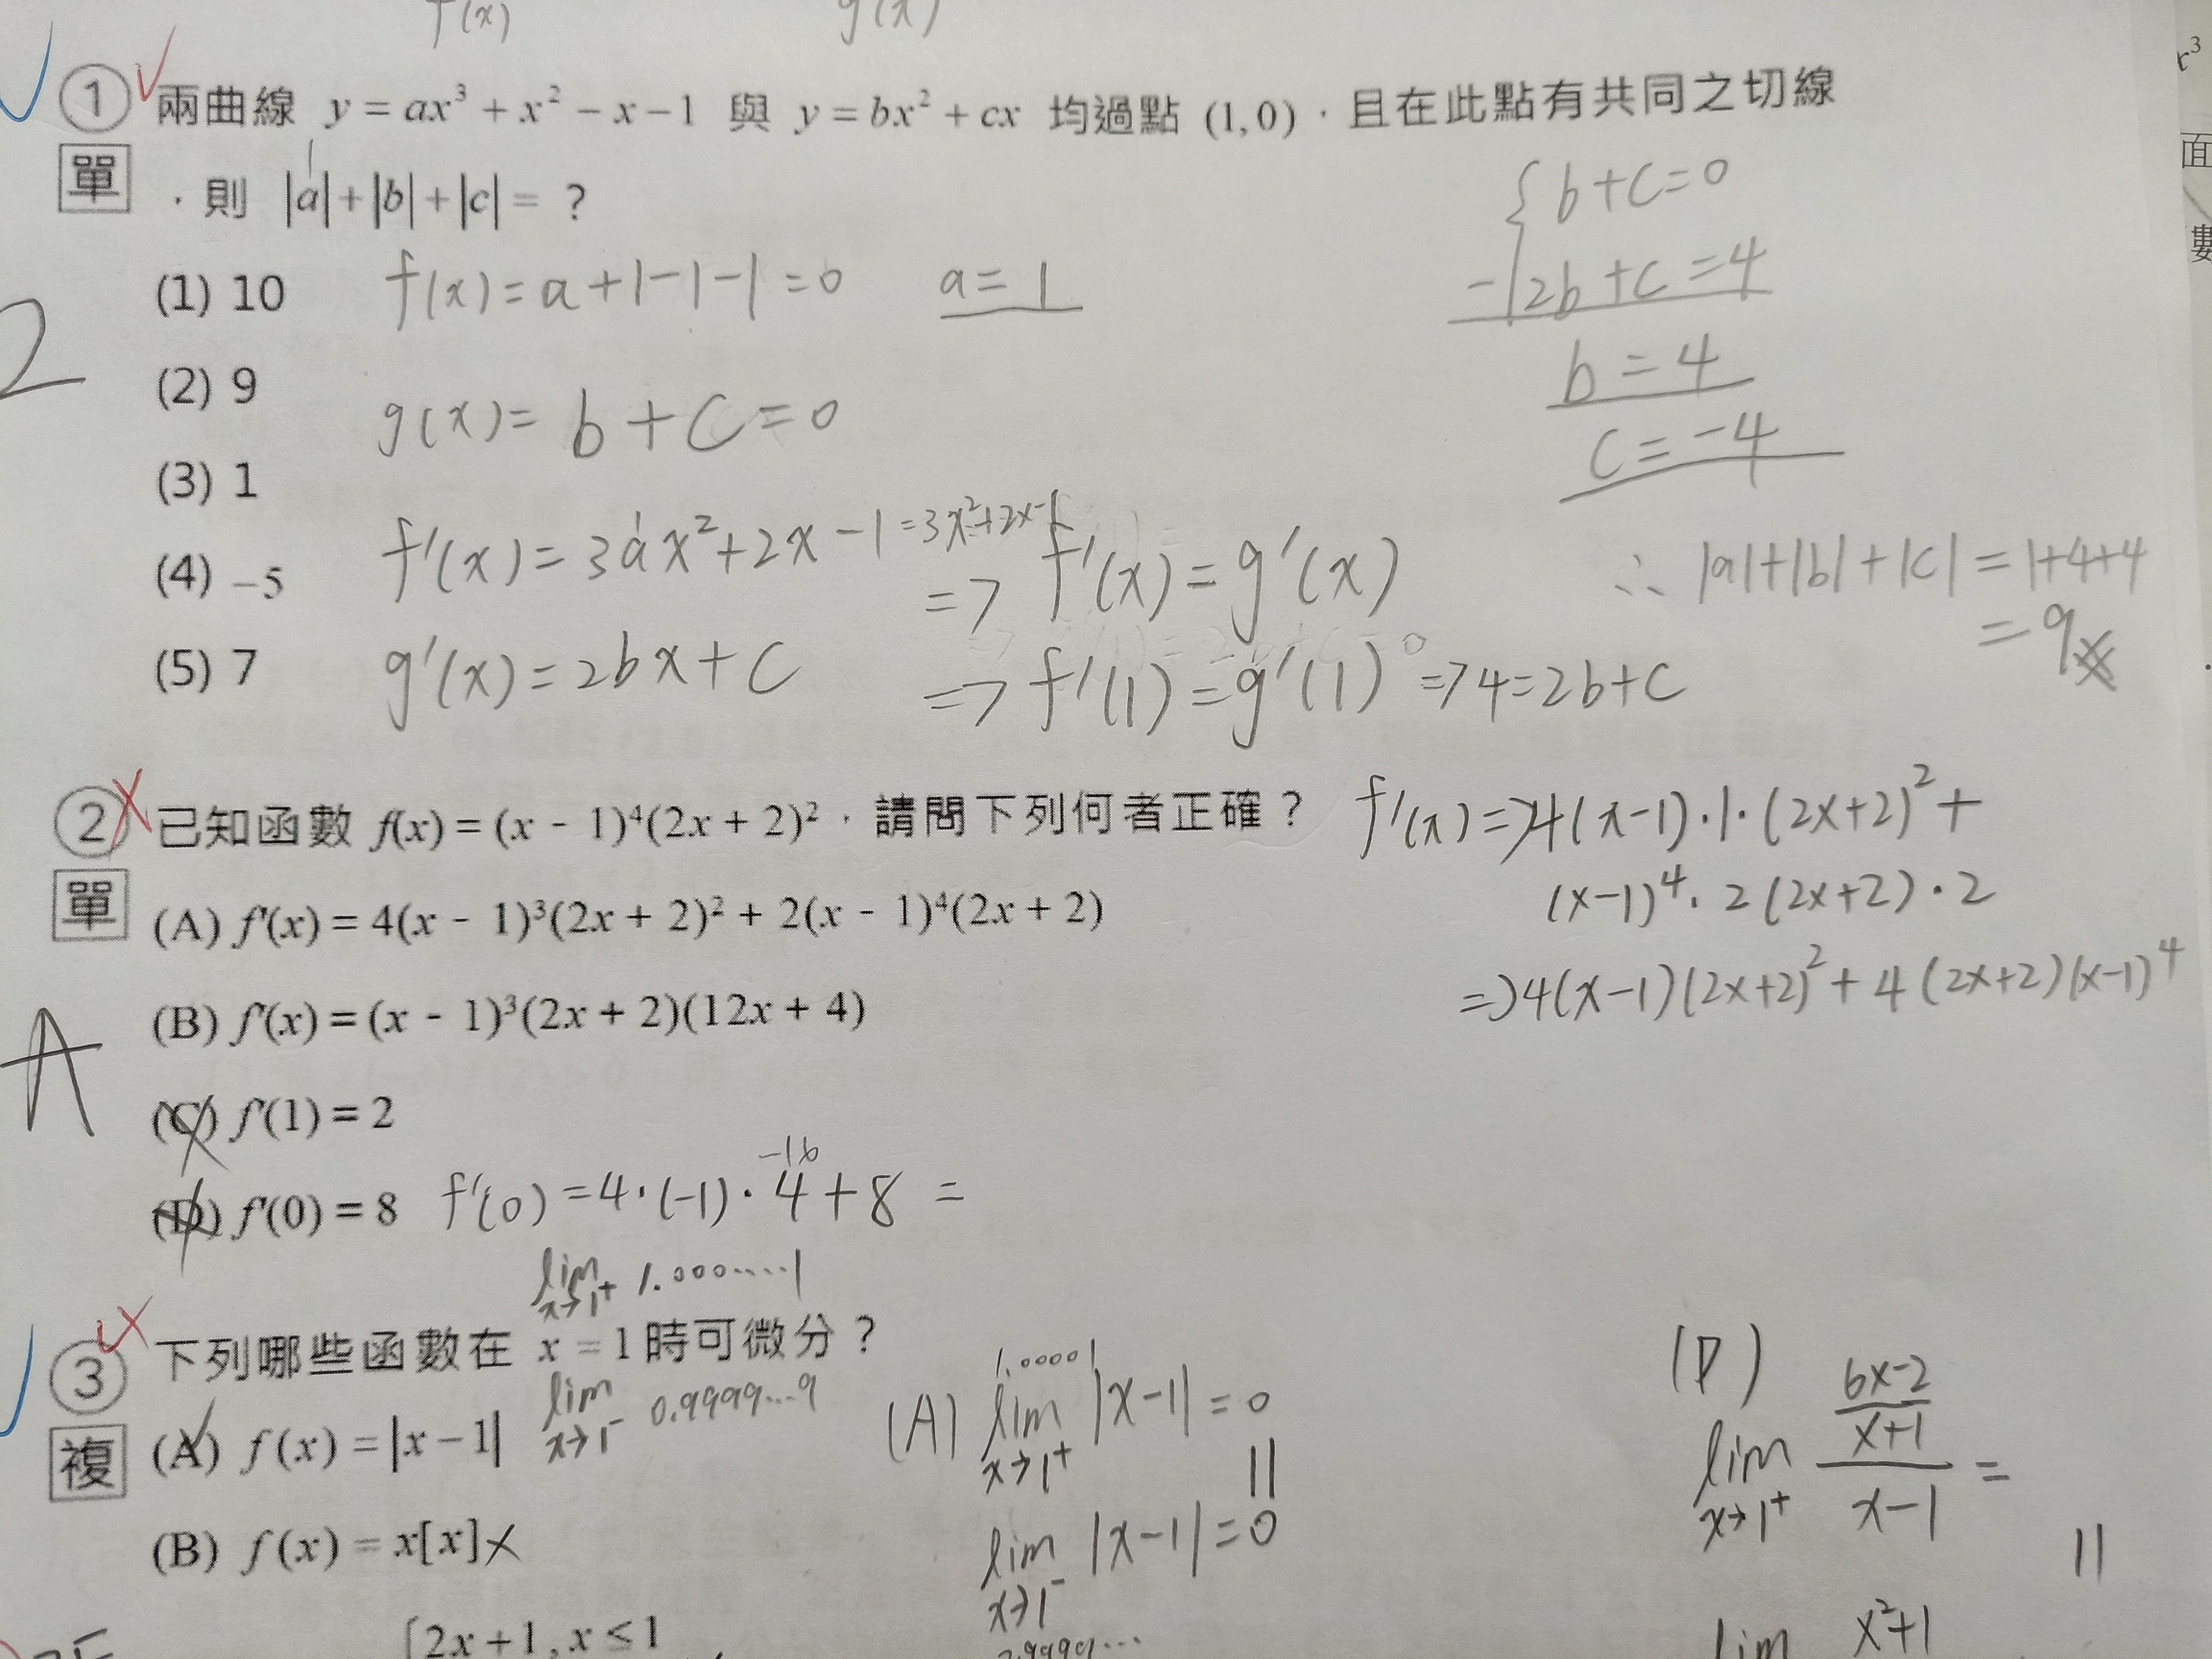 f(x) g(x)
① 兩曲線 y = ax³ + x² − x − 1 與 y = bx² + cx 均過點 (1,0),且在此點有共同之切線
單 ,則 |a| + |b| + |c| = ?
1
(1) 10
(2) 9
(3) 1
(4) −5
(5) 7
2
f(x) = a+1−1−1 = 0 a = 1
g(x) = b + c = 0
f'(x) = 3ax² + 2x − 1 = 3x²+2x−1
g'(x) = 2bx + c
=> f'(x) = g'(x)
=> f'(1) = g'(1) => 4 = 2b+c
{ b + c = 0
−) 2b + c = 4
b = 4
c = −4
∴ |a|+|b|+|c| = 1+4+4
= 9
② 已知函數 f(x) = (x - 1)⁴(2x + 2)²,請問下列何者正確?
單 (A) f'(x) = 4(x - 1)³(2x + 2)² + 2(x - 1)⁴(2x + 2)
(B) f'(x) = (x - 1)³(2x + 2)(12x + 4)
(C) f'(1) = 2
(D) f'(0) = 8
A
f'(x) => 4(x−1)·1·(2x+2)² +
(x−1)⁴·2(2x+2)·2
=> 4(x−1)(2x+2)² + 4(2x+2)(x−1)⁴
−16
f'(0) = 4·(−1)·4 + 8 =
lim x→1⁺ 1.000....1
③ 下列哪些函數在 x = 1 時可微分?
lim x→1⁻ 0.9999...9
複 (A) f(x) = |x − 1|
(B) f(x) = x[x] ×
{2x + 1, x ≤ 1
1.00001
(A) lim x→1⁺ |x−1| = 0
||
lim x→1⁻ |x−1| = 0
(D)
lim x→1⁺ (6x−2)/(x+1) / (x−1) =
||
lim x²+1
x³
面